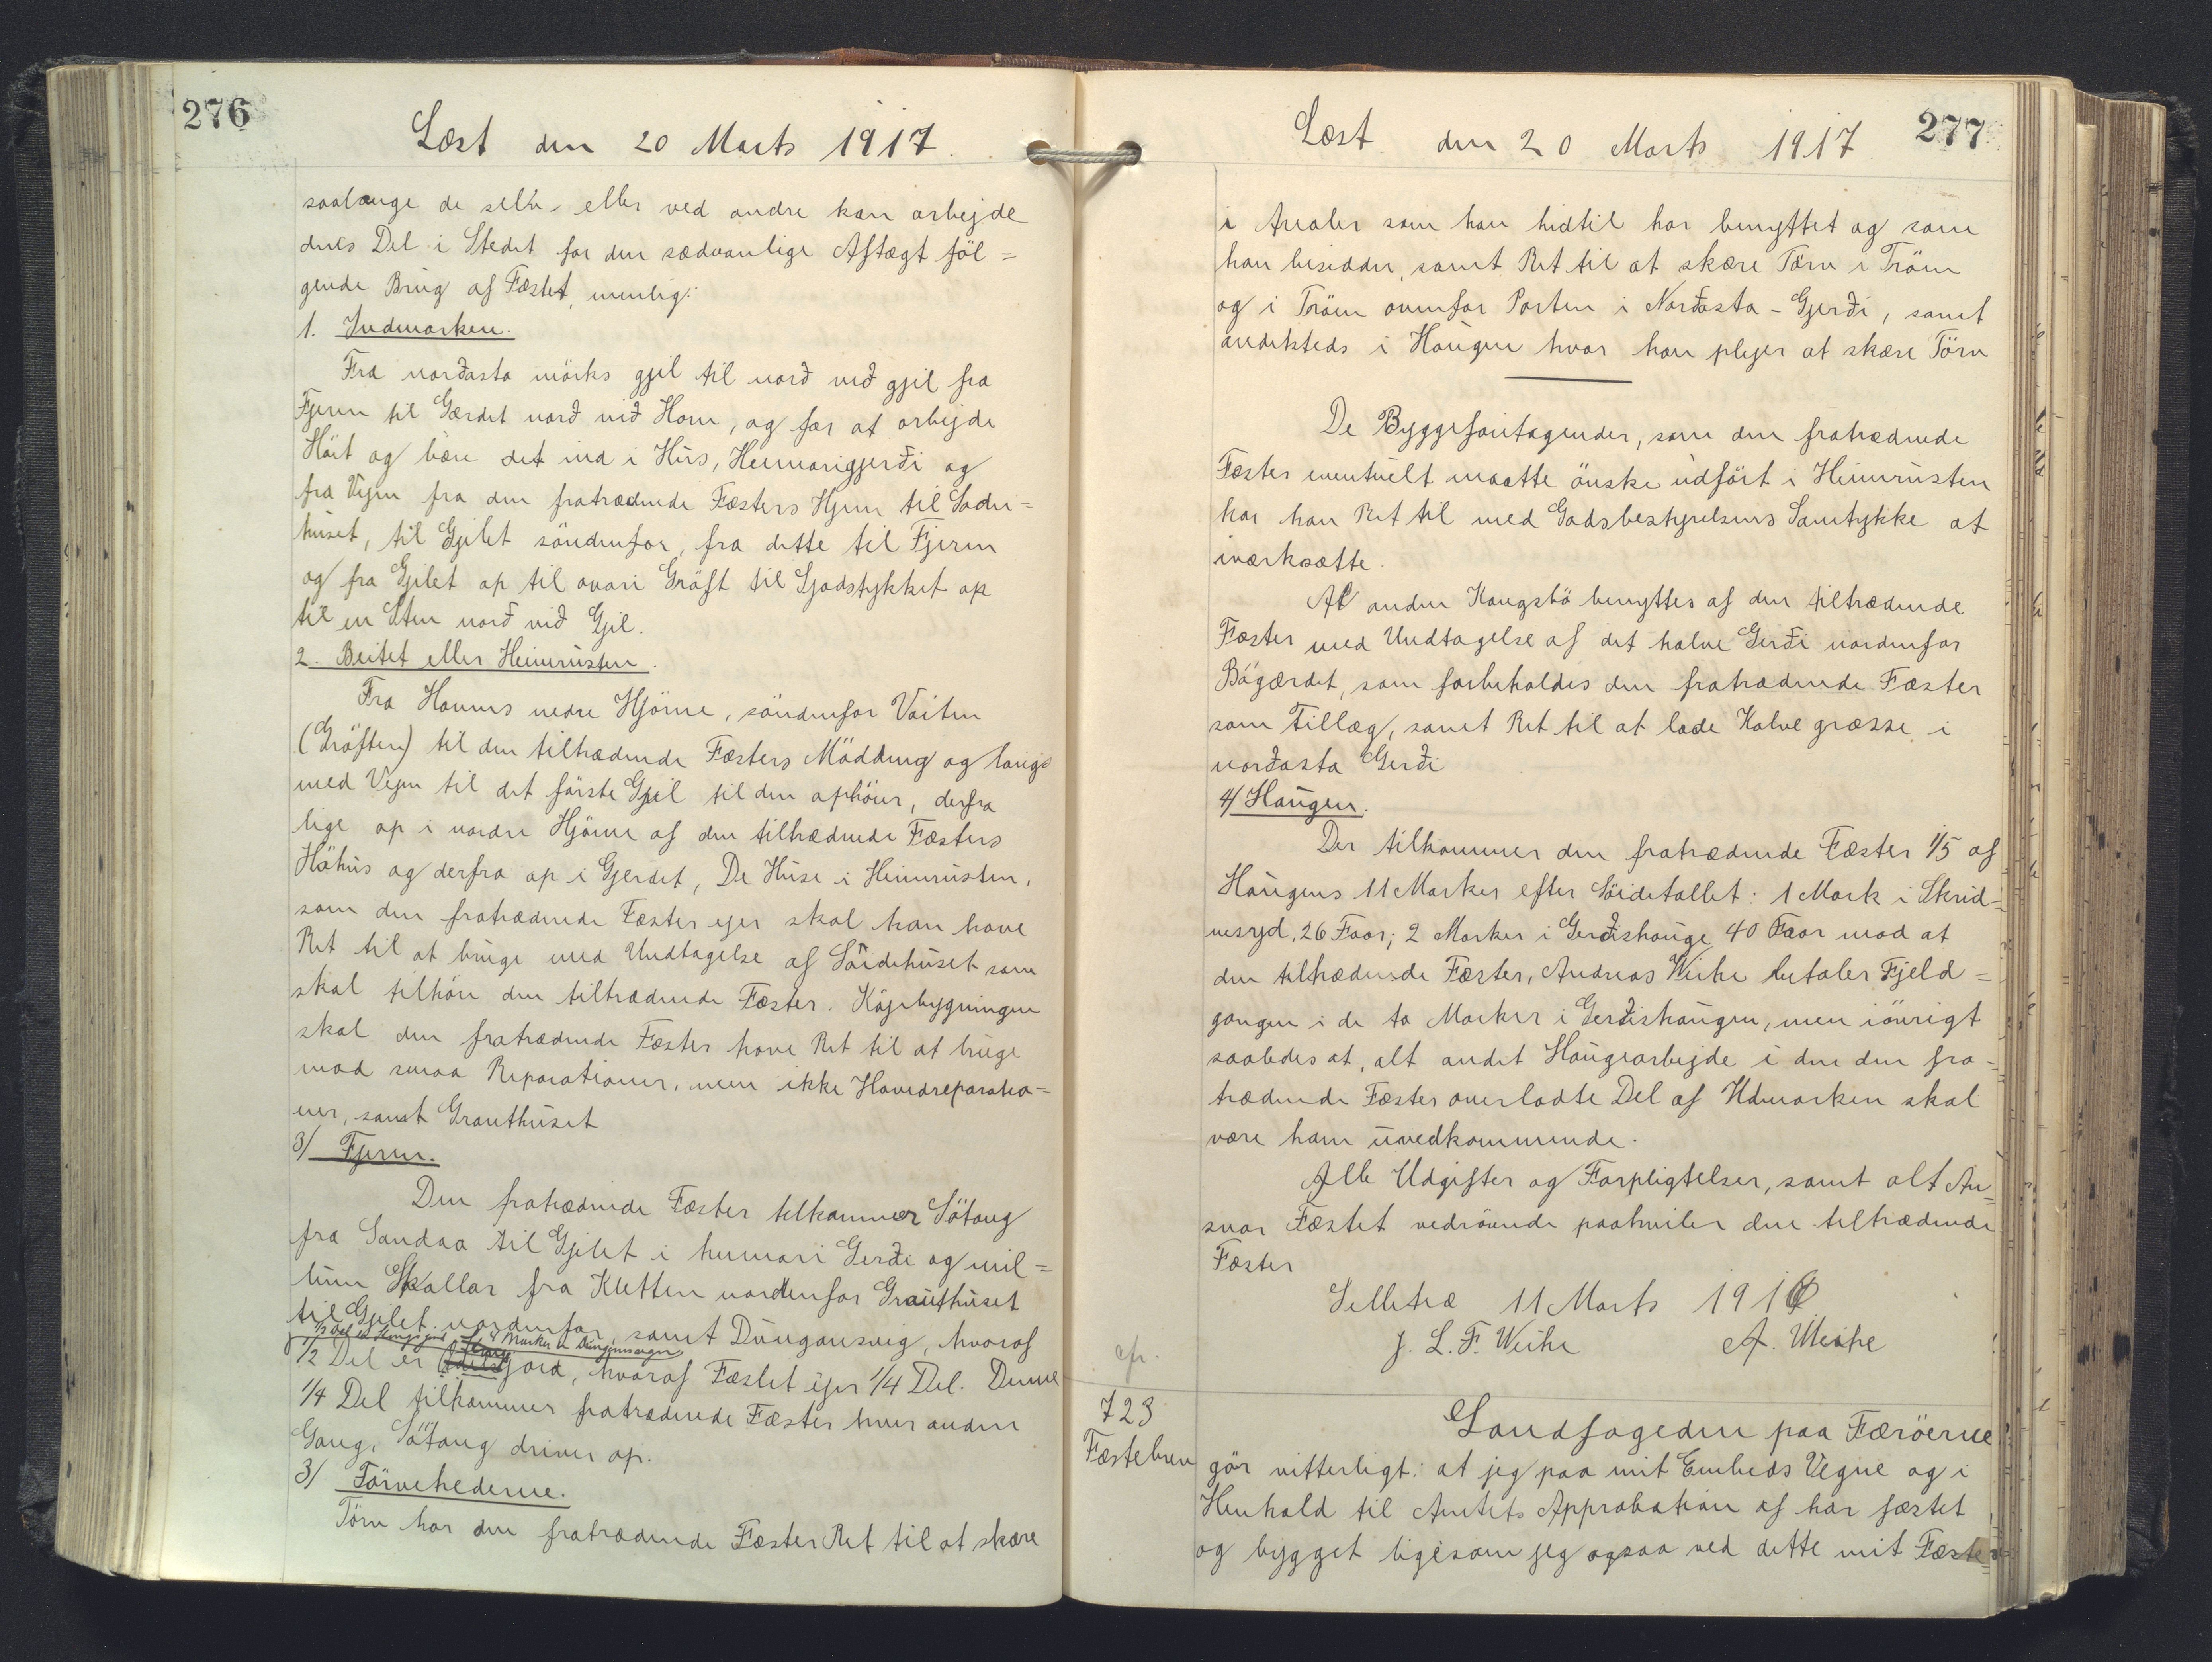 276
Læst den 20 Marts 1917.
saalænge de selv- eller ved andre kan arbejde
deres Del i Stedet for den sædvanlige Aftægt föl=
gende Brug af Fæstet, nemlig:
1. Indmarken.
Fra norðasta mörks gjil til norð við gjil fra
Fjeren til Gærdet norð við Horn, og for at arbejde
Höit og bære det ind i Hus, Heimarigjerði og
fra Vejen fra den fratrædende Fæsters Hjem til Lade=
huset, til Gjilet söndenfor, fra dette til Fjeren
og fra Gjilet op til ovari Gröft til Gjodstykket op
til en Sten norð við Gjil.
2. Beitet eller Heimrusten.
Fra Havens nedre Hjörne, söndenfor Vaiten
(Gröften) til den tiltrædende Fæsters Mödding og langs
med Vejen til det förste Gjil til den ophörer, derfra
lige op i nordre Hjörne af den tiltrædende Fæsters
Höhus og derfra op i Gjerdet, De Huse i Heimrusten,
som den fratrædende Fæster ejer skal han have
Ret til at bruge med Undtagelse af Söidehuset som
skal tilhöre den tiltrædende Fæster. Köjebygningen
skal den fratrædende Fæster have Ret til at bruge
mod smaa Reparationer, men ikke Hovedreparatio=
ner, samt Grauthuset
3/ Fjeren.
Den fratrædende Fæster tilkommer Sötang
fra Sandaa til Gjilet i heimari Gerði og mil=
lum Skallar fra Kletten nordenfor Grauthuset
til Gjilet nordenfor, samt Dungansvig, hvoraf
1/2 Del er Kongsjord 4 Marker i Dungansvigen
1/2 Del er Odelsjord, hvoraf Fæstet ejer 1/4 Del. Denne
1/4 Del tilkommer fratrædende Fæster hver anden
Gang, Sötang driver op.
3/ Törvehederne.
Törv har den fratrædende Fæster Ret til at skære
277
Læst den 20 Marts 1917.
i Arealer som han hidtil har benyttet og som
han besidder, samt Ret til at skære Törv i Tröen
og i Tröen ovenfor Porten i Norðasta-Gjerði, samt
andetsteds i Haugen hvor han plejer at skære Törv
De Byggeforetagender, som den fratrædende
Fæster eventuelt maatte önske udfört i Heimrusten
har han Ret til med Godsbestyrelsens Samtykke at
iværksætte.
Al anden Kongsbö benyttes af den tiltrædende
Fæster med Undtagelse af det halve Gerði nordenfor
Bögærdet, som forbeholdes den fratrædende Fæster
som Tillæg, samt Ret til at lade Kalve græsse i
norðasta Gerði
4/ Haugen.
Der tilkommer den fratrædende Fæster 1/5 af
Haugens 11 Marker efter Söidetallet: 1 Mark i Skrid=
nesyd, 26 Faar; 2 Marker i Gerðishauge 40 Faar mod at
den tiltrædende Fæster, Andreas Weihe betaler Fjeld=
gangen i de to Marker i Gerðishaugen, men iövrigt
saaledes at, alt andet Haugearbejde i den den fra=
trædende Fæster overladte Del af Udmarken skal
være ham uvedkommende.
Alle Udgifter og Forpligtelser, samt alt An=
svar Fæstet vedrörende paahviler den tiltrædende
Fæster
Selletræ 11 Marts 1916
J. L. F. Weihe A. Weihe
cfr.
723
Fæstebrev
Landfogeden paa Færöerne
gör vitterligt: at jeg paa mit Embeds Vegne og i
Henhold til Amtets Approbation af har fæstet
og bygget ligesom jeg ogsaa ved dette mit Fæste=